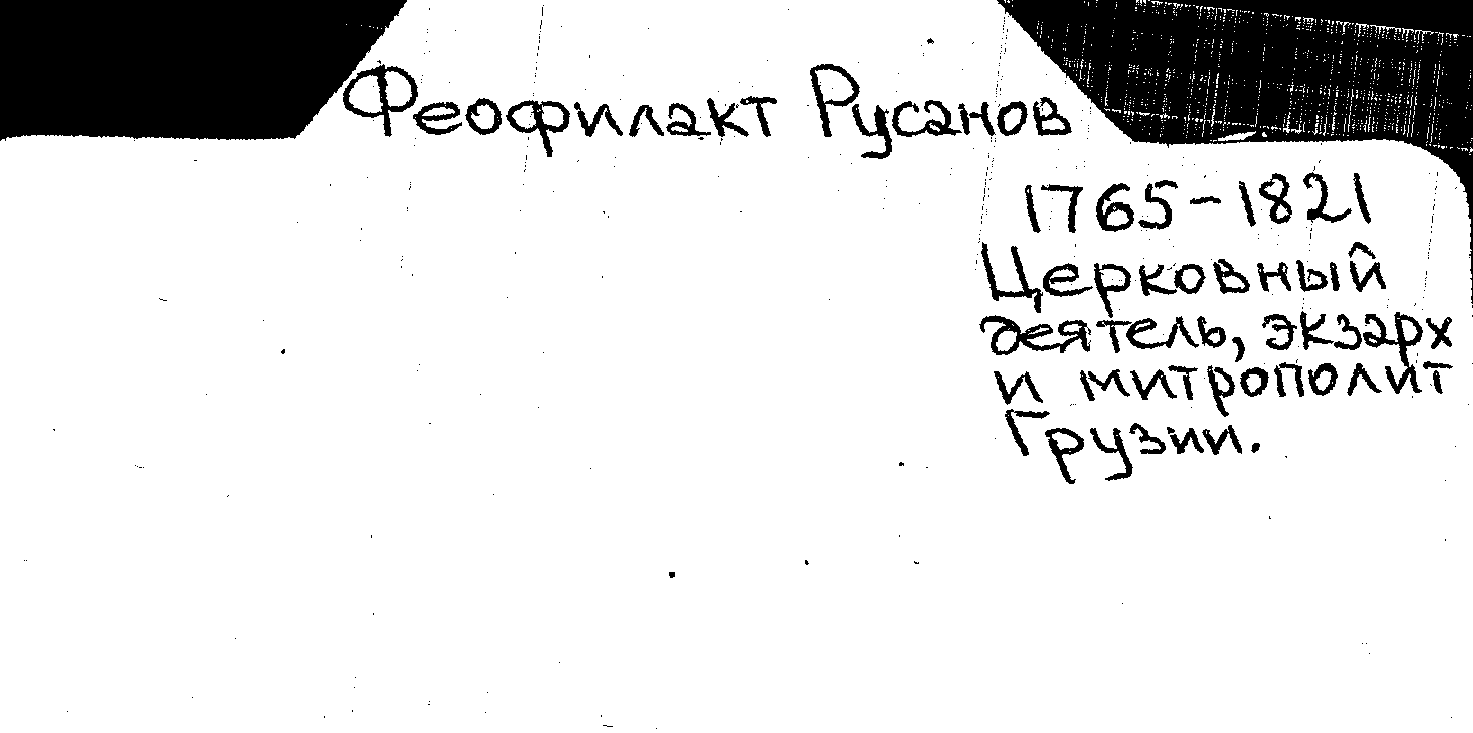 Феофилакт Русанов
1765-1821
Церковный
деятель, экзарх
и митрополит
Грузии.